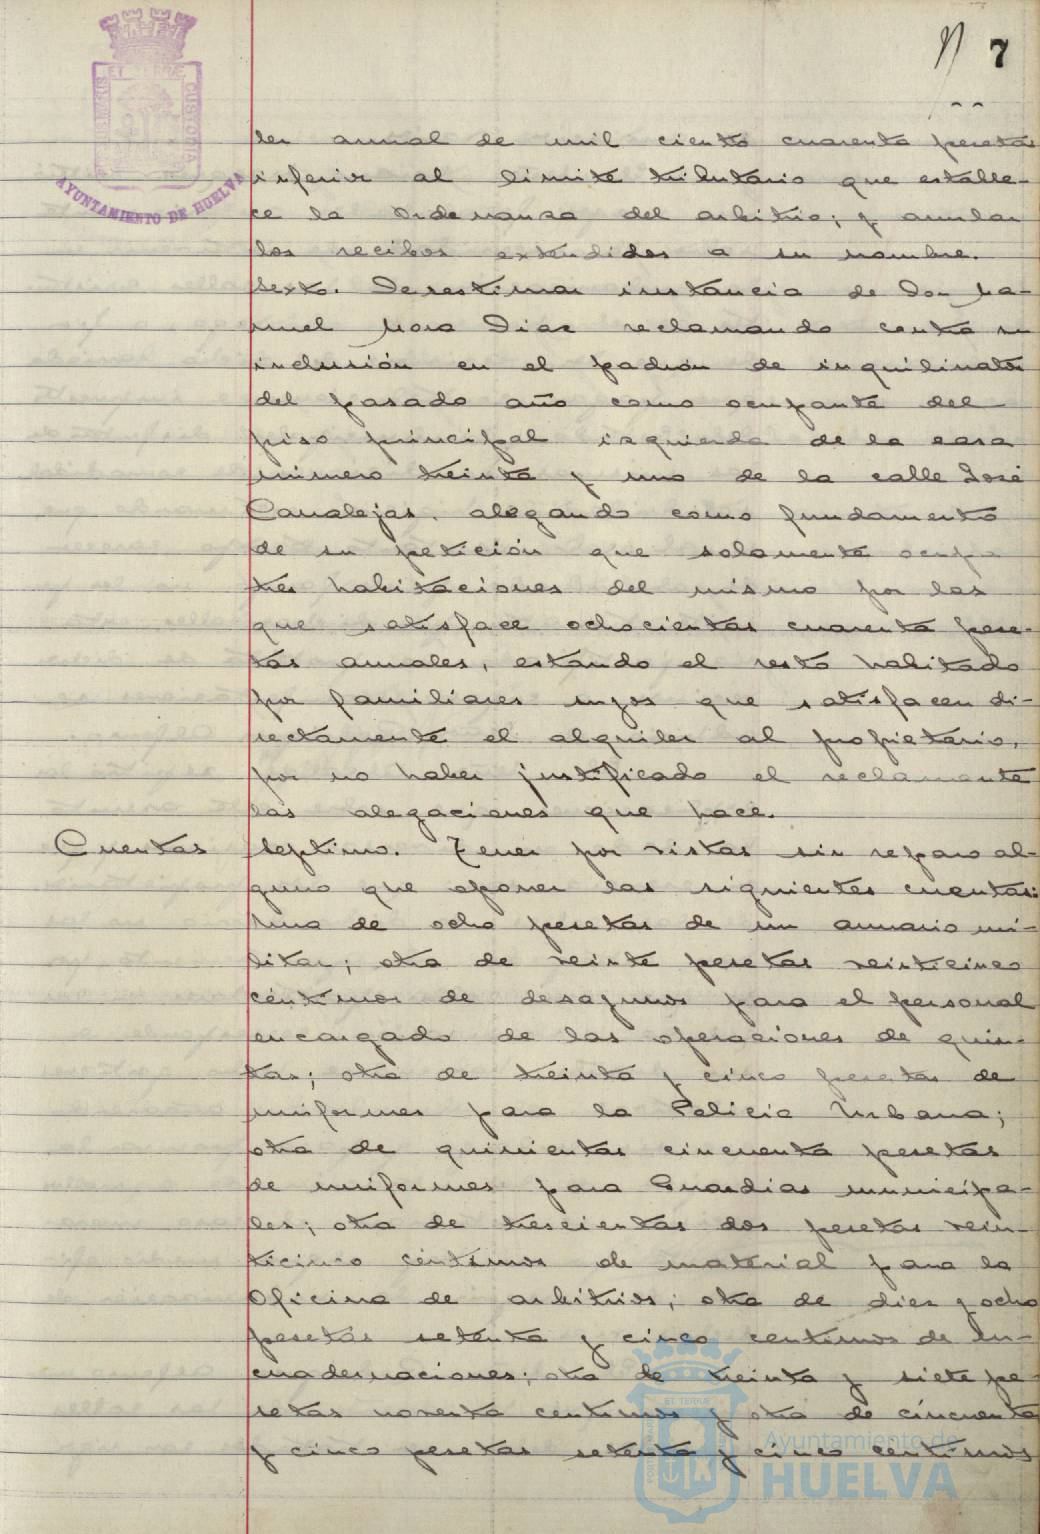 7
ET TERRÆ
CUSTODIA
AYUNTAMIENTO DE HUELVA
ler anual de mil ciento cuarenta pesetas
inferior al límite tributario que estable-
ce la Ordenanza del arbitrio; y anular
los recibos extendidos a su nombre.
Sexto. Desestimar instancia de Don Ma-
nuel Mora Diaz reclamando contra su
inclusión en el padrón de inquilinatos
del pasado año como ocupante del
piso principal izquierda de la casa
número treinta y uno de la calle José
Canalejas, alegando como fundamento
de su petición que solamente ocupa
tres habitaciones del mismo por las
que satisface ochocientas cuarenta pese-
tas anuales, estando el resto habitado
por familiares suyos que satisfacen di-
rectamente el alquiler al propietario,
por no haber justificado el reclamante
las alegaciones que hace.
Cuentas Septimo. Tener por vistas sin reparo al-
guno que oponer las siguientes cuentas:
Una de ocho pesetas de un anuario mi-
litar; otra de veinte pesetas veinticinco
céntimos de desayunos para el personal
encargado de las operaciones de quin-
tas; otra de treinta y cinco pesetas de
uniformes para la Policia Urbana;
otra de quinientas cincuenta pesetas
de uniformes para Guardias municipa-
les; otra de trescientas dos pesetas vein-
ticinco céntimos de material para la
Oficina de arbitrios; otra de diez y ocho
pesetas setenta y cinco centimos de En-
cuadernaciones; otra de treinta y siete pe
setas noventa centimos y otra de cincuenta
y cinco pesetas setenta y cinco centimos
Ayuntamiento de
HUELVA